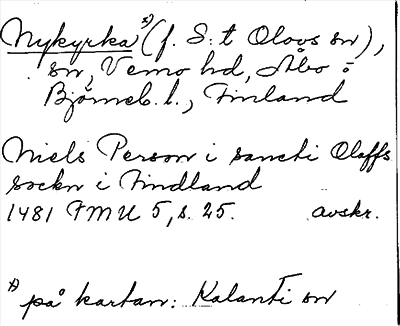 Nykyrka x) (f. S:t Olovs sn),
sn, Vemo hd, Åbo o
Björneb. l., Finland
Niels Person i sancti Olaffs
sockn i Findland
1481 FMU 5, s. 25. avskr.
x) på kartan: Kalanti sn